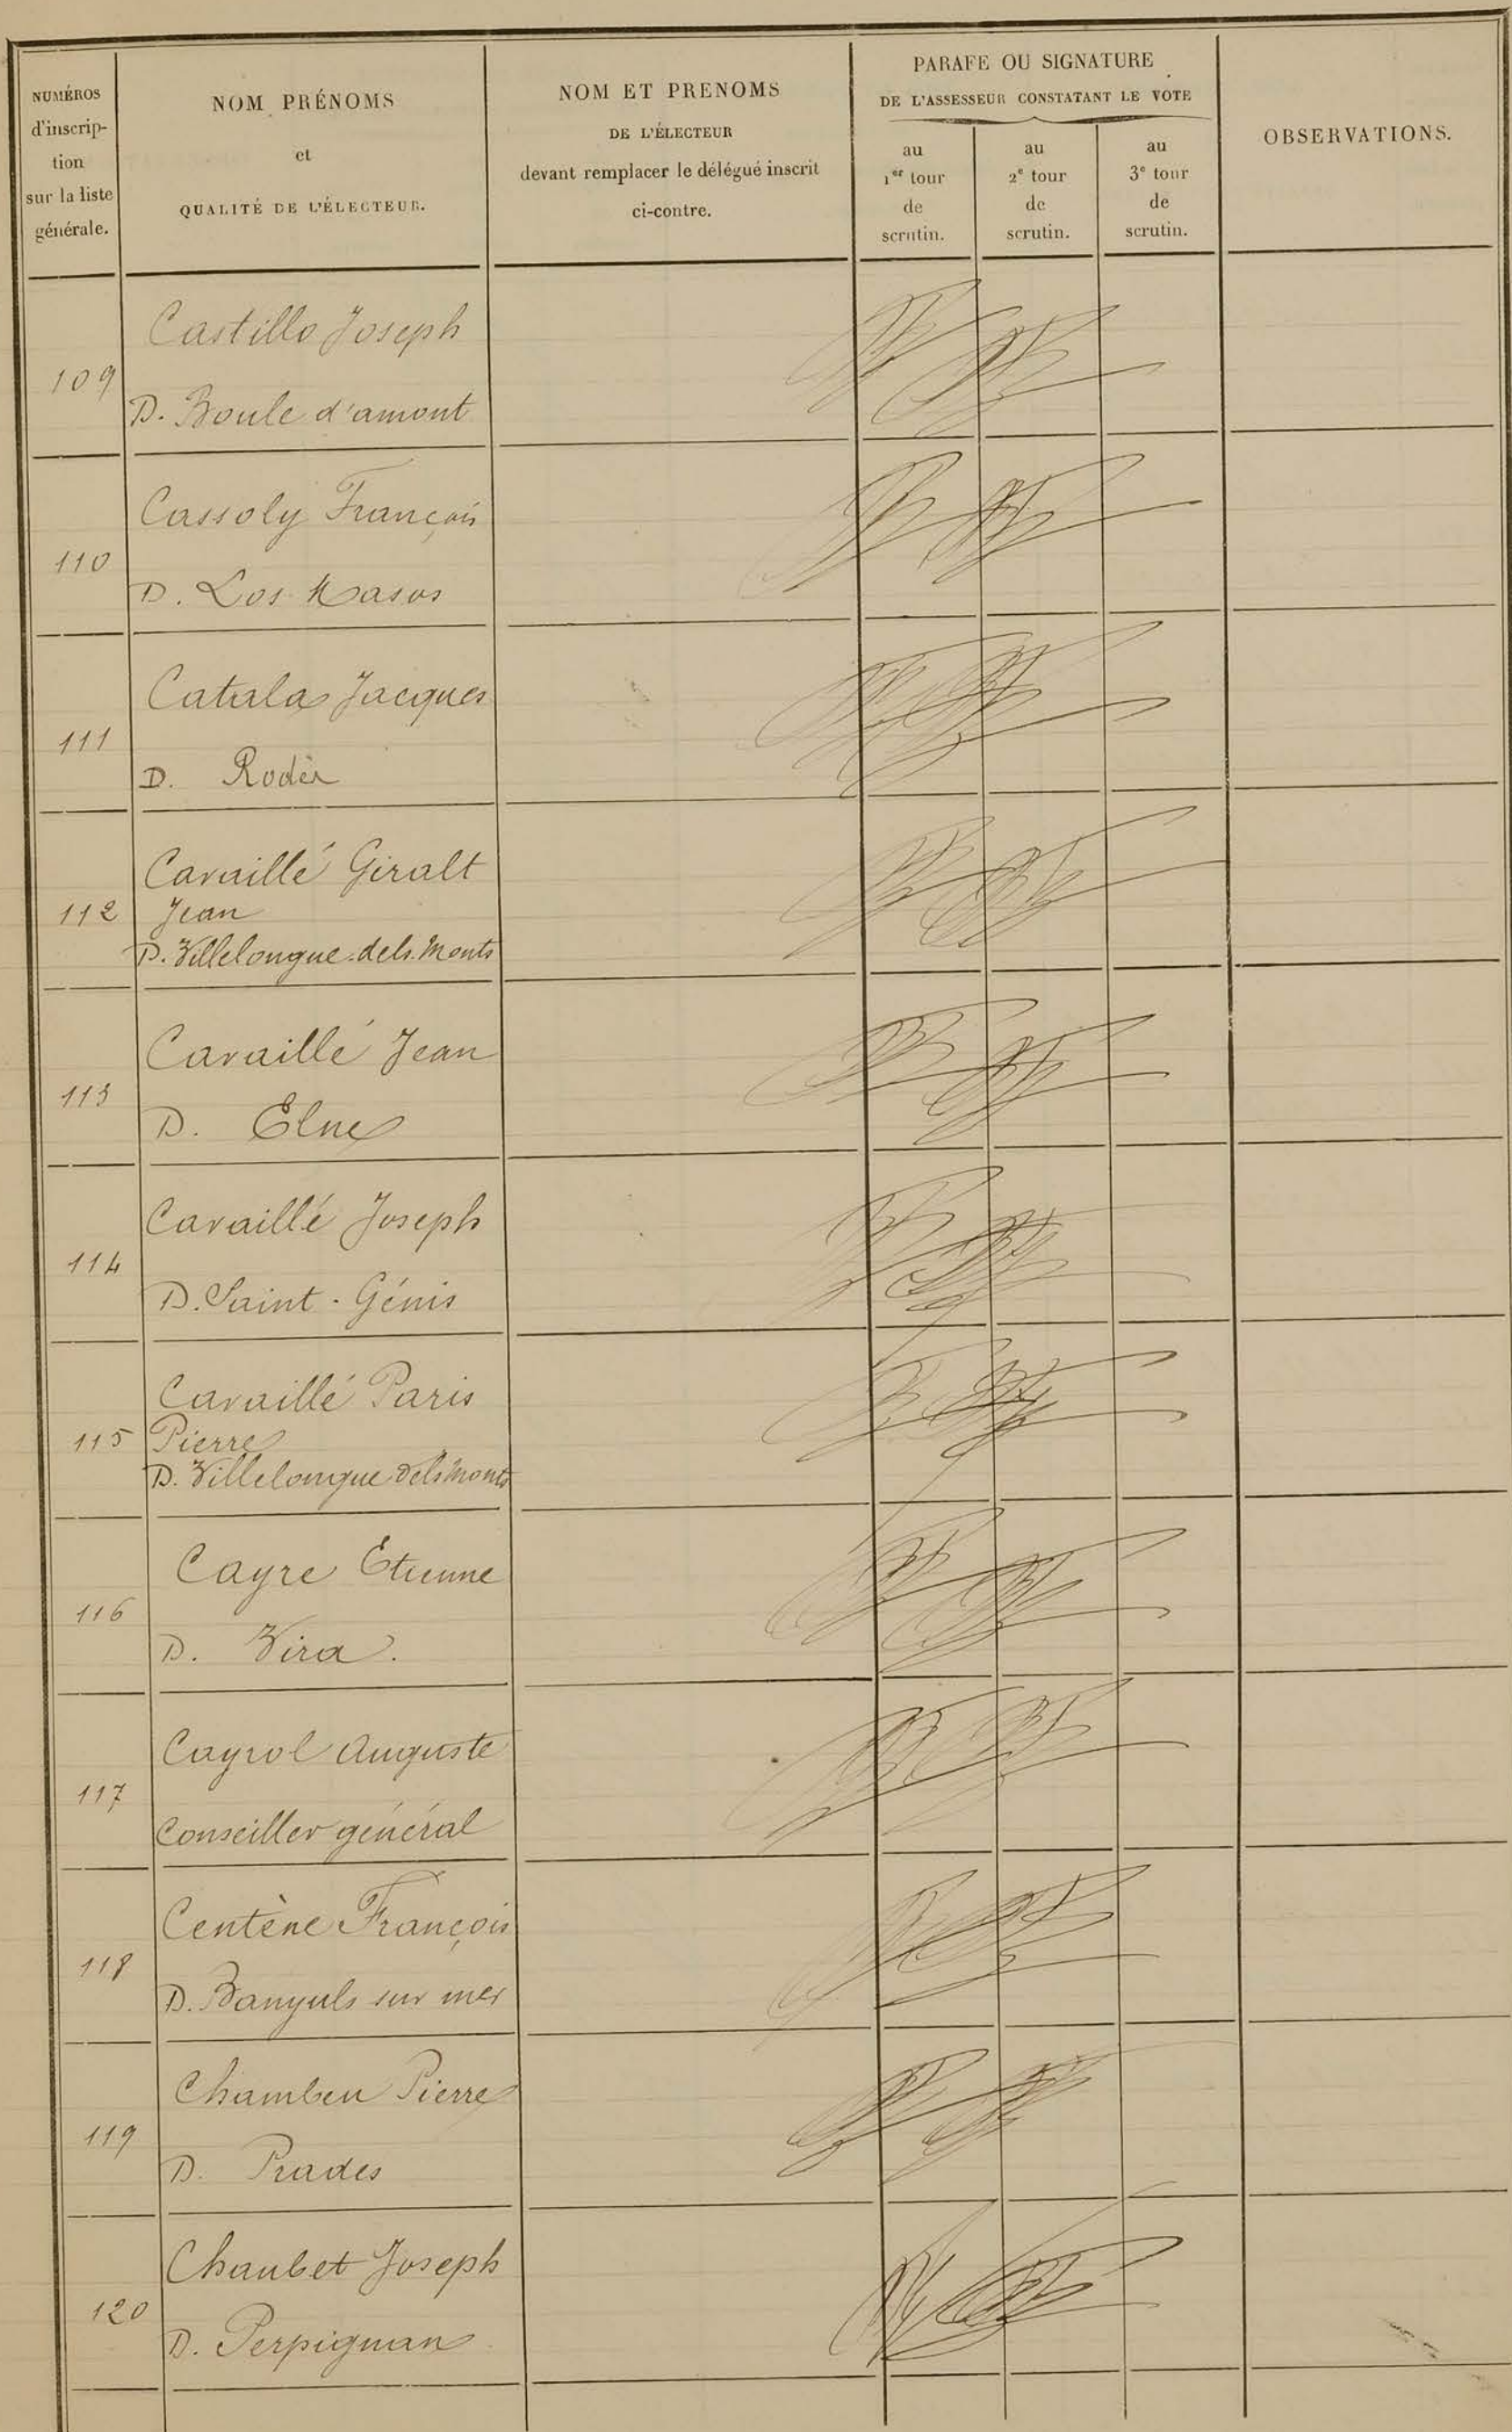 NUMÉROS
d'inscrip-
tion
sur la liste
générale.
NOM PRÉNOMS
et
QUALITÉ DE L'ÉLECTEUR.
NOM ET PRENOMS
DE L'ÉLECTEUR
devant remplacer le délégué inscrit
ci-contre.
PARAFE OU SIGNATURE
DE L'ASSESSEUR CONSTATANT LE VOTE
au
1er tour
de
scrutin.
au
2e tour
de
scrutin.
au
3e tour
de
scrutin.
OBSERVATIONS.
109
Castillo Joseph
D. Boule d'amont
110
Cassoly François
D. Los Masos
111
Catala Jacques
D. Rodès
112
Cavaillé Giralt
Jean
D. Villelongue dels Monts
113
Cavaillé Jean
D. Elne
114
Cavaillé Joseph
D. Saint-Génis
115
Cavaillé Paris
Pierre
D. Villelongue dels Monts
116
Cayre Etienne
D. Vira.
117
Cayrol Auguste
Conseiller général
118
Centène François
D. Banyuls sur mer
119
Chambeu Pierre
D. Prades
120
Chaubet Joseph
D. Perpignan